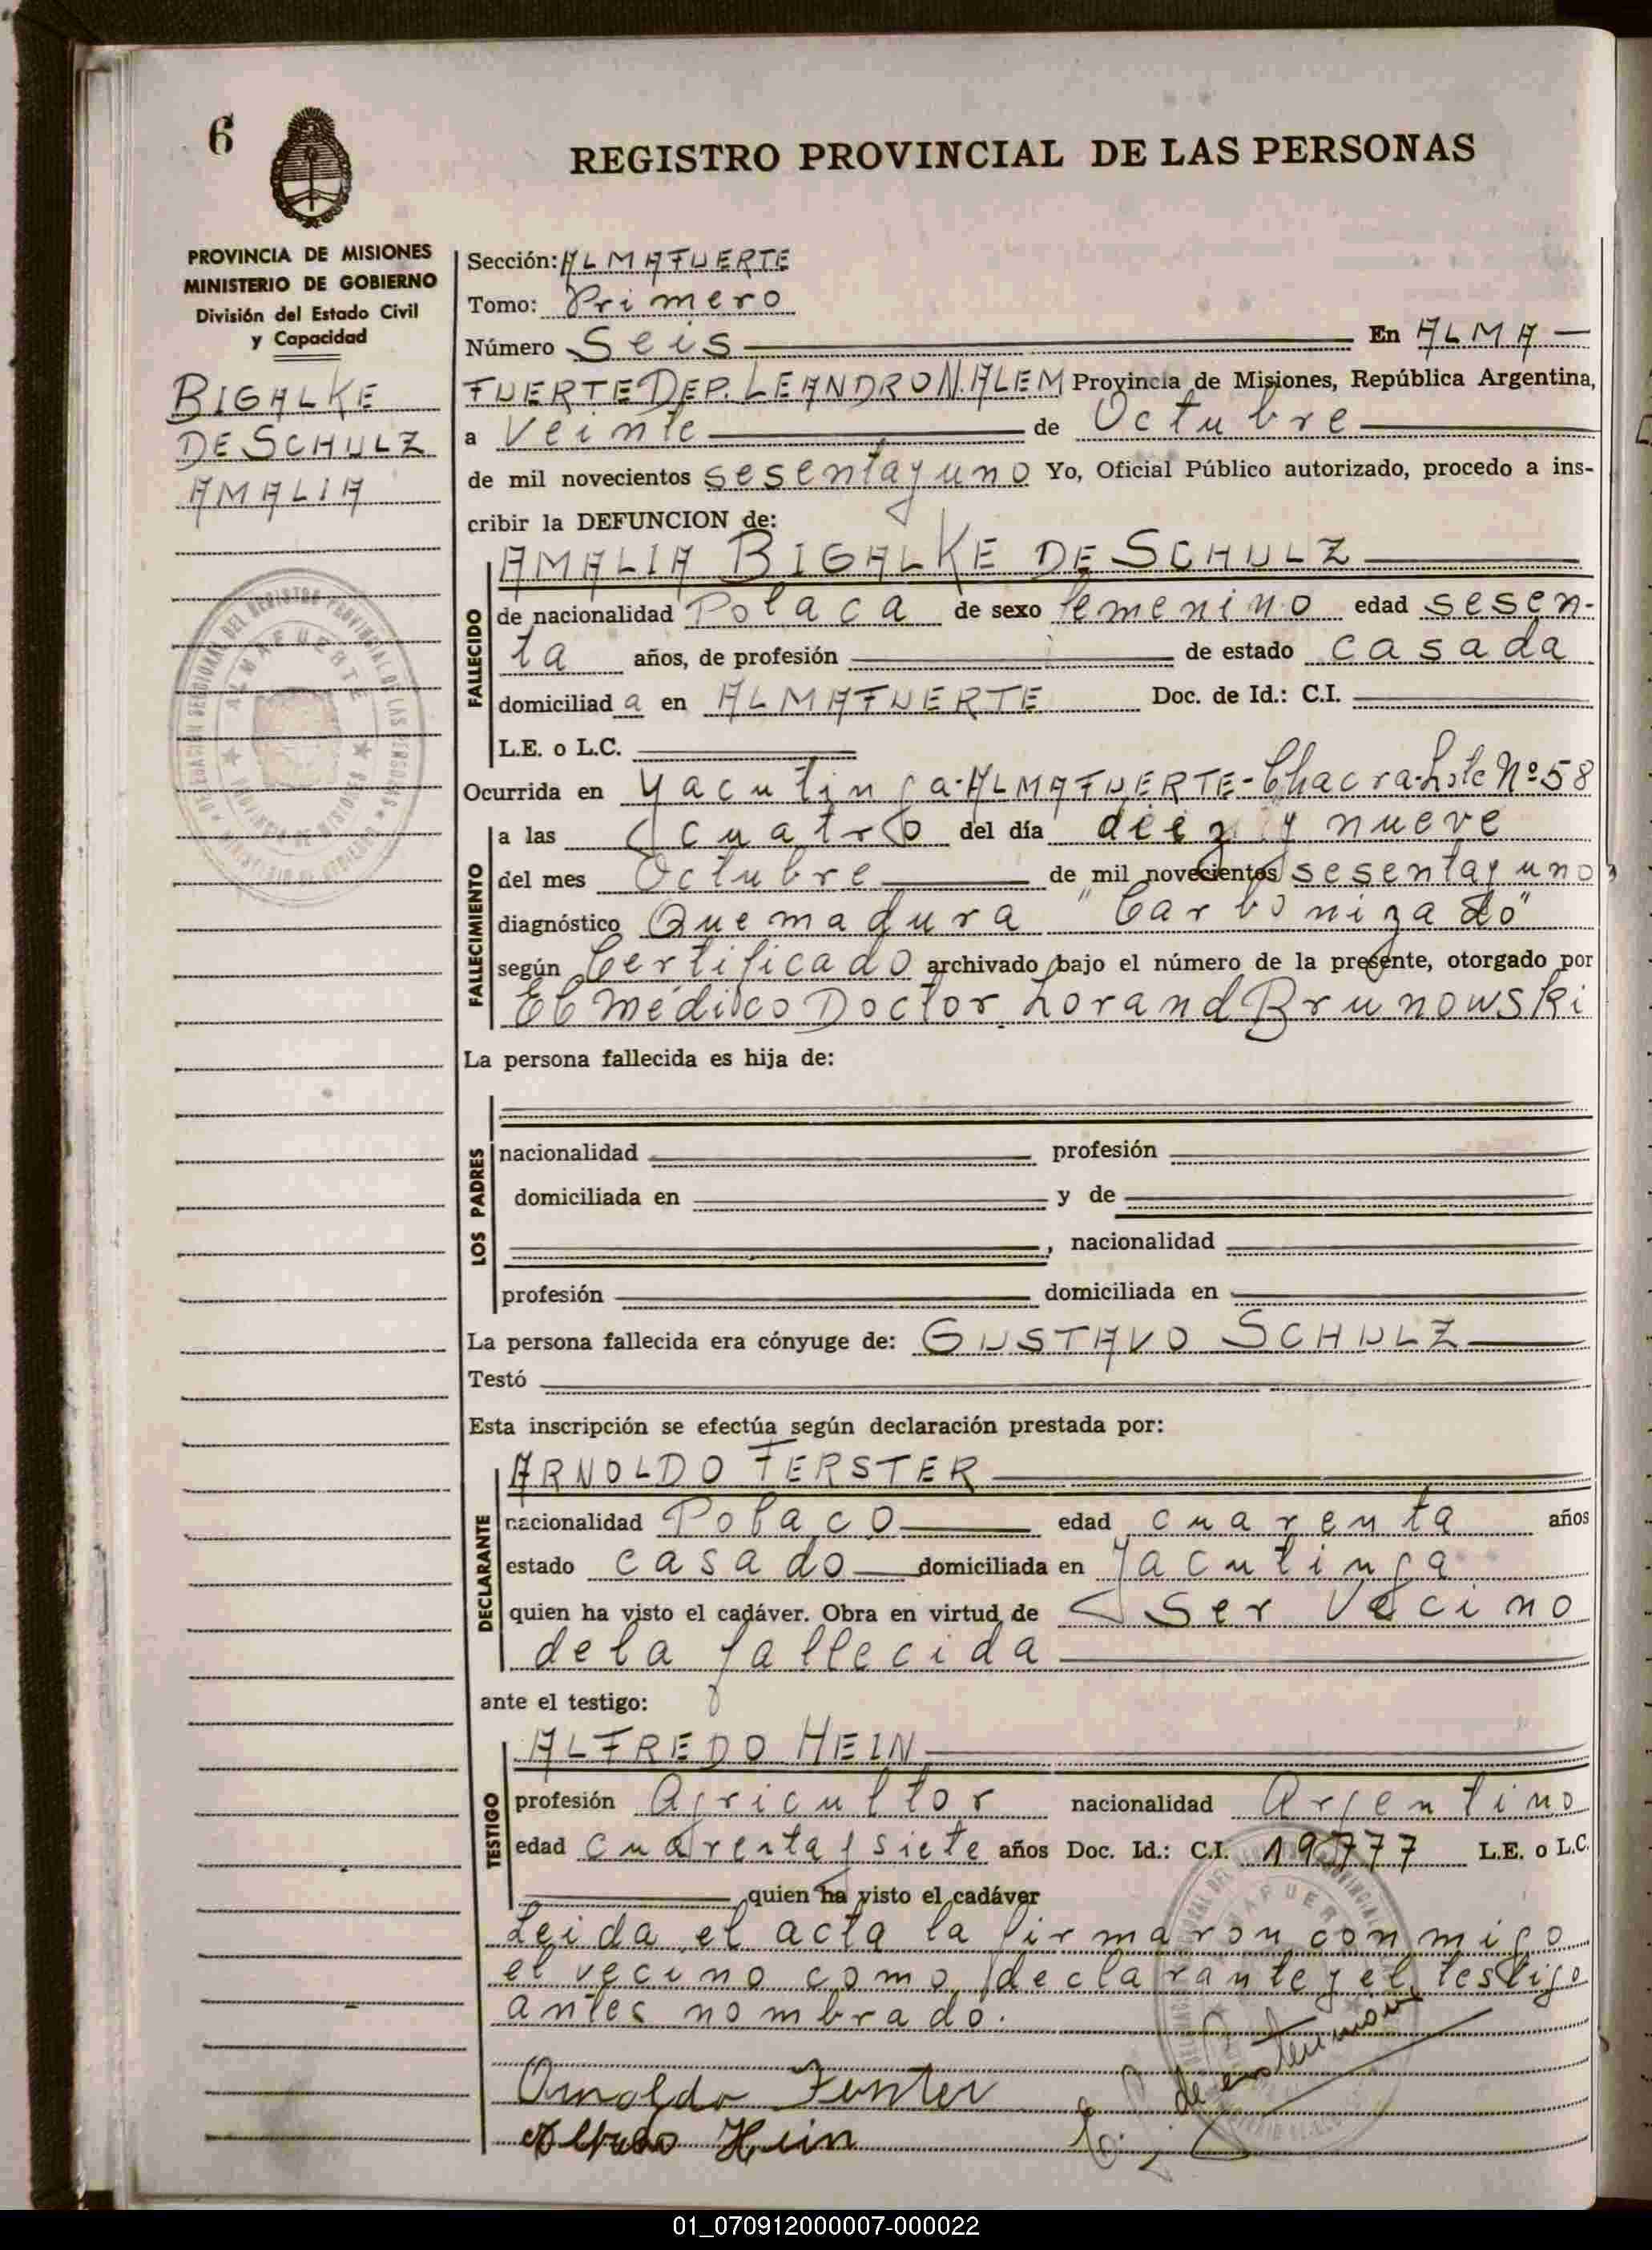 6
REGISTRO PROVINCIAL DE LAS PERSONAS
PROVINCIA DE MISIONES
MINISTERIO DE GOBIERNO
División del Estado Civil
y Capacidad
BIGALKE
DE SCHULZ
AMALIA
Sección: ALMAFUERTE
Tomo: Primero
Número Seis En ALMA-
FUERTE DEP. LEANDRO N. ALEM Provincia de Misiones, República Argentina,
a veinte de Octubre
de mil novecientos sesenta y uno Yo, Oficial Público autorizado, procedo a ins-
cribir la DEFUNCION de:
FALLECIDO
AMALIA BIGALKE DE SCHULZ
de nacionalidad Polaca de sexo femenino edad sesen-
ta años, de profesión de estado casada
domiciliad a en ALMAFUERTE Doc. de Id.: C.I.
L.E. o L.C.
Ocurrida en Yacutinga-ALMAFUERTE-Chacra-Lote Nº 58
FALLECIMIENTO
a las cuatro del día diez y nueve
del mes Octubre de mil novecientos sesenta y uno
diagnóstico Quemadura "Carbonizado"
según Certificado archivado bajo el número de la presente, otorgado por
El médico Doctor Lorand Brunowski
La persona fallecida es hija de:
LOS PADRES
nacionalidad profesión
domiciliada en y de
, nacionalidad
profesión domiciliada en
La persona fallecida era cónyuge de: GUSTAVO SCHULZ
Testó
Esta inscripción se efectúa según declaración prestada por:
DECLARANTE
ARNOLDO FERSTER
nacionalidad Polaco edad cuarenta años
estado casado domiciliada en Yacutinga
quien ha visto el cadáver. Obra en virtud de Ser Vecino
de la fallecida
ante el testigo:
TESTIGO
ALFREDO HEIN
profesión Agricultor nacionalidad Argentino
edad cuarenta y siete años Doc. Id.: C.I. 19777 L.E. o L.C.
quien ha visto el cadáver
Leida el acta la firmaron conmigo
el vecino como declarante y el testigo
antes nombrado.
Arnoldo Ferster
Alfredo Hein
01_070912000007-000022